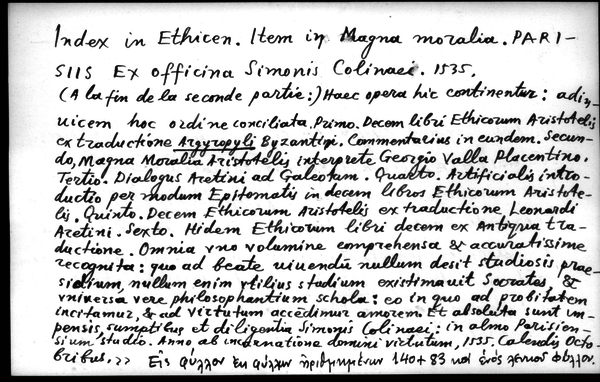 Index in Ethicen. Item in Magna moralia. PARI-
SIIS Ex officina Simonis Colinaei. 1535.
(A la fin de la seconde partie:) Haec opera hic continentur: adin
uicem hoc ordine conciliata. Primo. Decem libri Ethicorum Aristotelis
ex traductione Argyropyli Byzantini. Commentarius in eundem. Secun-
do, Magna Moralia Aristotelis interprete Georgio Valla Placentino.
Tertio. Dialogus Aretini ad Galeotum. Quarto. Artificialis intro-
ductio per modum Epitomatis in decem libros Ethicorum Aristote-
lis. Quinto. Decem Ethicorum Aristotelis ex traductione Leonardi
Aretini. Sexto. Hidem Ethicorum libri decem ex Antiqua tra-
ductione. Omnia vno volumine comprehensa & accuratissime
recognita: quo ad beate uiuendū nullum desit studiosis prae-
sidium, nullum enim vtilius studium existimauit Socrates, &
vniuersa vere philosophantium schola: eo in quo ad probitatem
incitamur, & ad virtutum accedimur amorem. Et absoluta sunt im-
pensis, sumptibus et diligentia Simonis Colinaei: in almo Parisien-
sium studio. Anno ab incarnatione domini virtutum, 1535. Calendis Octo-
bribus.>> Εἰς φύλλον ἐκ φύλλων ἠριθμημένων 140+83 καὶ ἑνὸς λευκοῦ φύλλου.